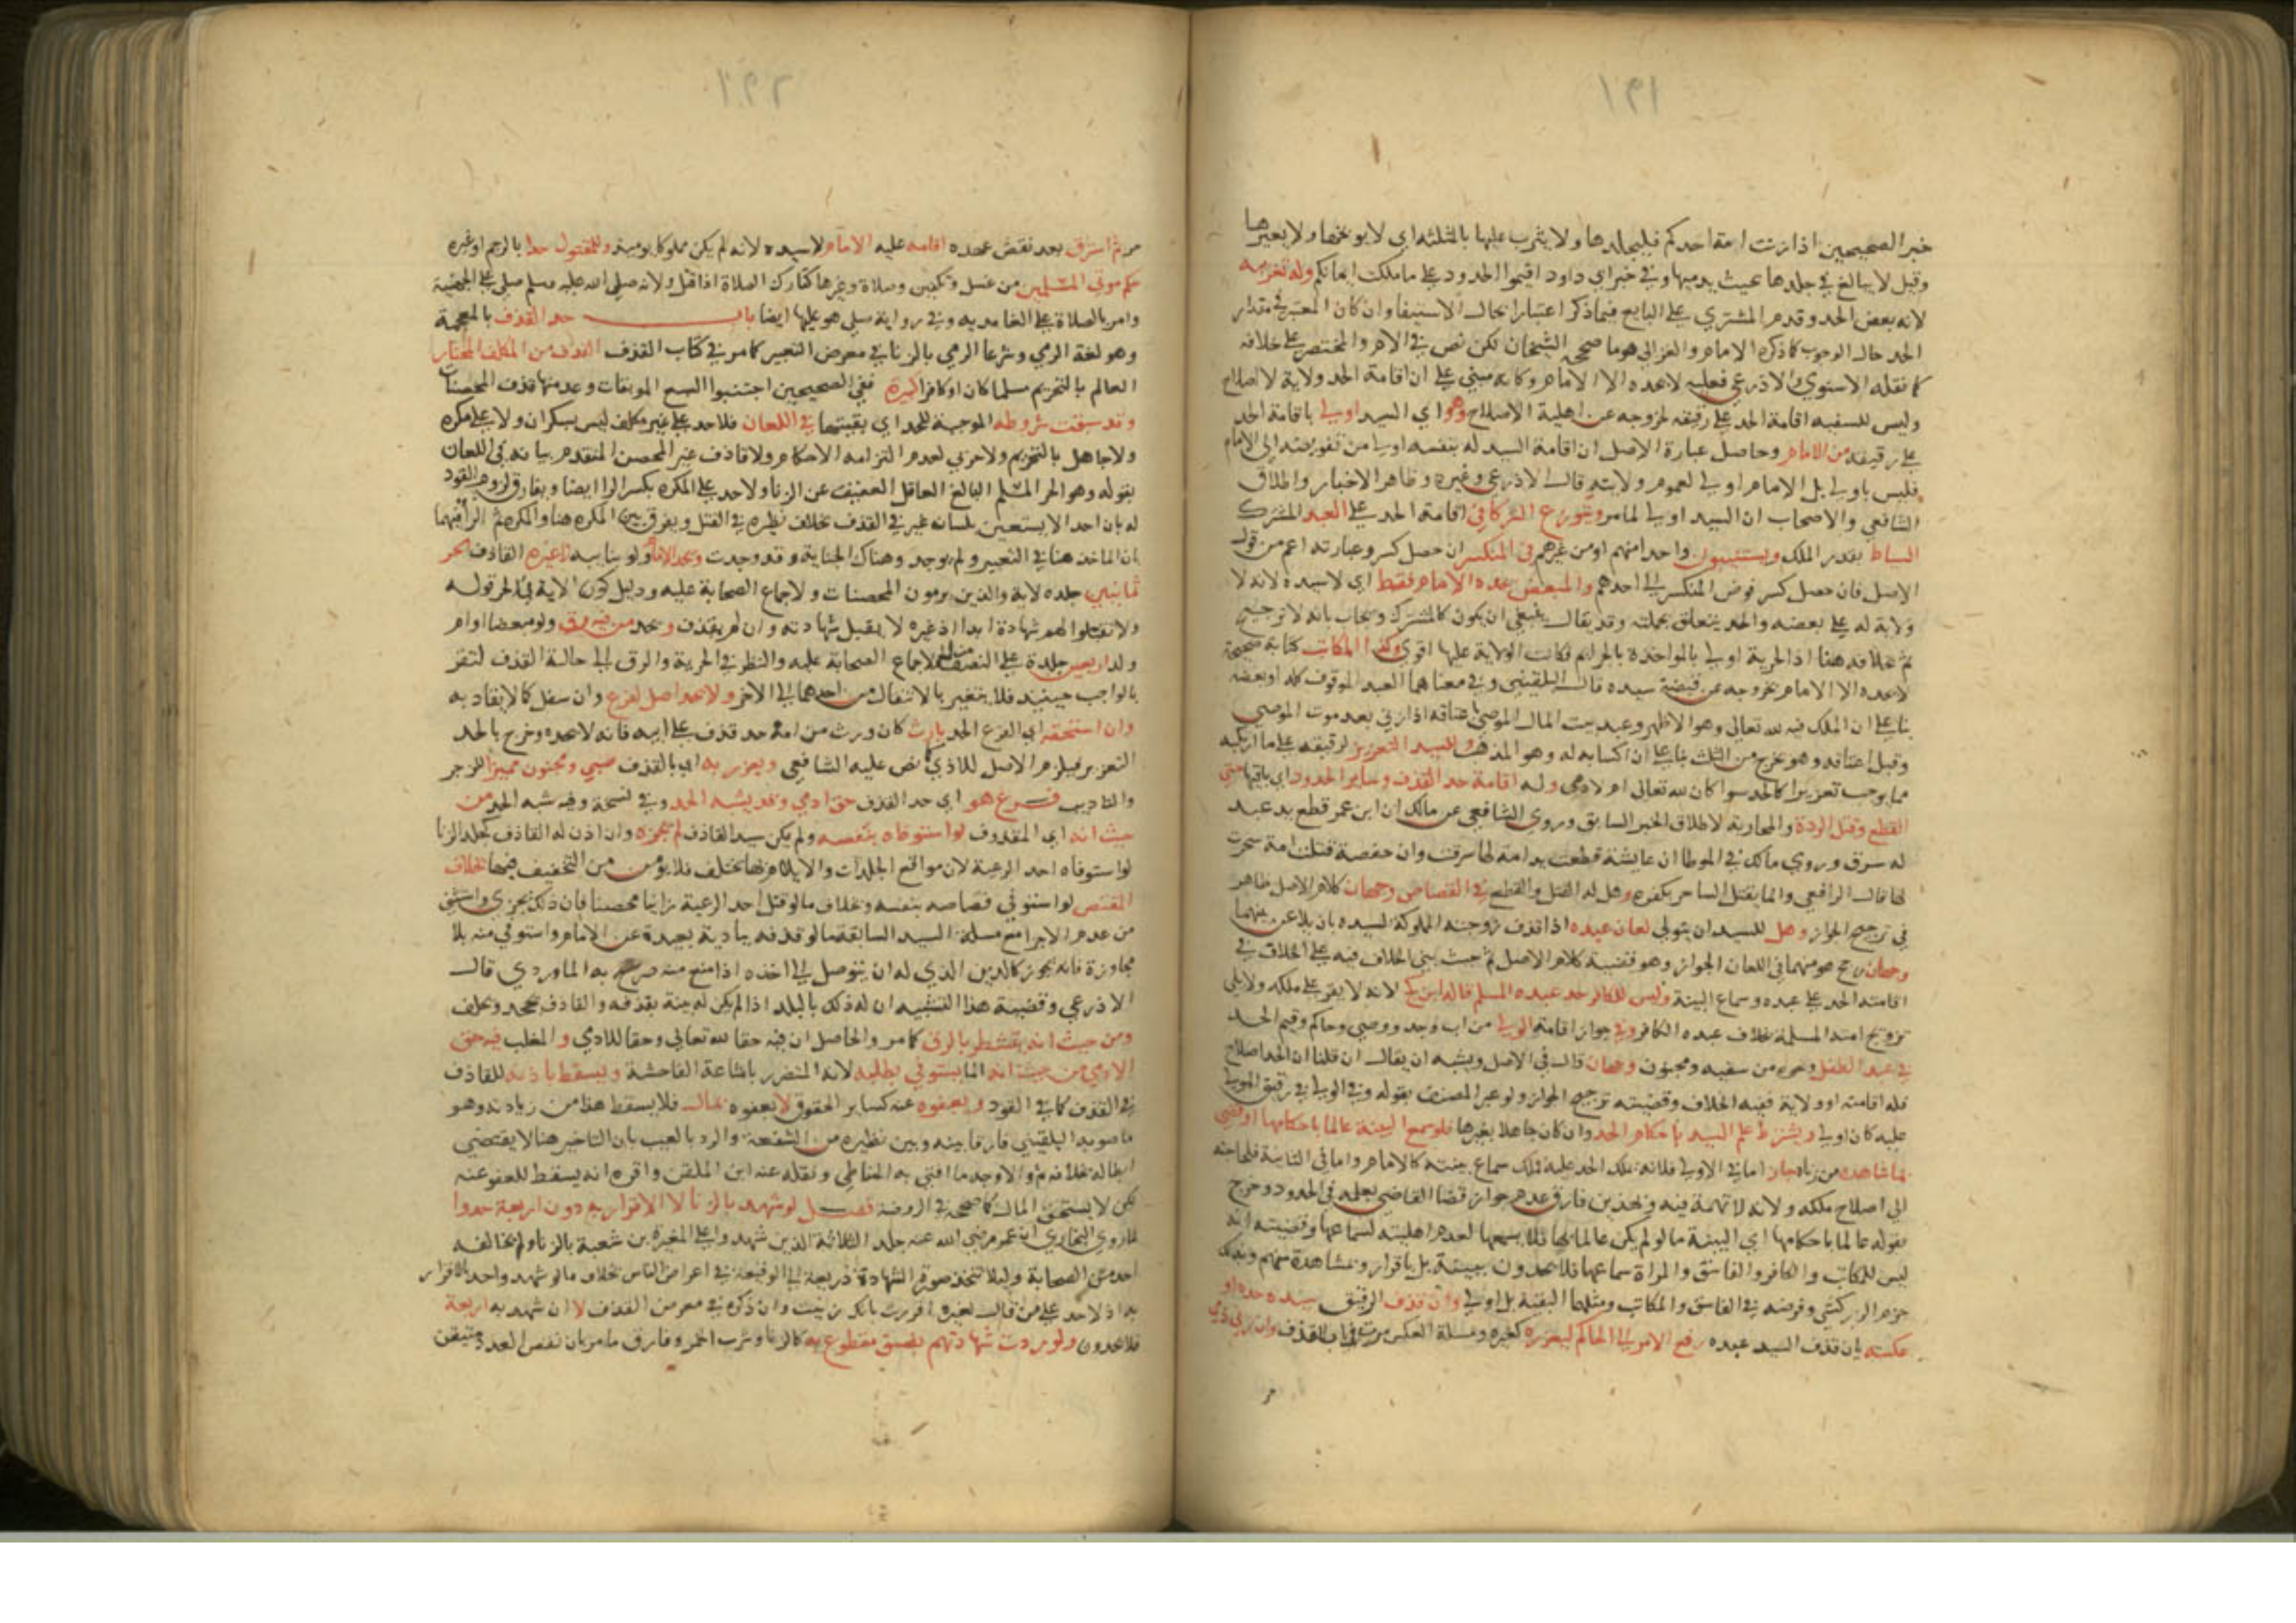 ١٩١
خبر الصحيحين اذا زنت امة احدكم فليجلدها ولا يثرب عليها بالمثلثة اي لا يوبخها ولا يعيرها
وقيل لا يبالغ في جلدها بحيث يدميها وفي خبر ابي داود اقيموا الحدود على ما ملكت ايمانكم وله تغريبه
لانه بعض الحد وقدم المشتري على البايع فيما ذكر اعتبارا بحال الاستيفا وان كان المعتبر في مقدار
الحد حال الوجوب كما ذكره الامام والغزالي هو ما صححه الشيخان لكن نص في الام والمختصر على خلافه
كما نقله الاسنوي والاذرعي فعليه لا يحده الا الامام وكانه مبني على ان اقامة الحد ولاية لا اصلاح
وليس للسفيه اقامة الحد على رقيقه لخروجه عن اهلية الاصلاح وهو اي السيد اولى باقامة الحد
على رقيقه من الامام وحاصل عبارة الاصل ان اقامة السيد له بنفسه اولى من تفويضه الى الامام
فليس باولى بل الامام اولى لعموم ولايته قال الاذرعي وغيره وظاهر الاخبار واطلاق
الشافعي والاصحاب ان السيد اولى لما مر ويتوزع الشركا في اقامة الحد على العبد المشترك
السياط بقدر الملك ويستنيبون واحدا منهم او من غيرهم في المنكسر ان حصل كسر وعبارته اعم من قول
الاصل فان حصل كسر فوض المنكسر الى احدهم والمبعض يحده الامام فقط اي لا سيده لانه لا
ولاية له على بعضه والحد يتعلق بجملته وقد يقال ينبغي ان يكون كالمشترك ويجاب بانه لا ترجيح
ثم بخلافه هنا اذ الحرية اولى بالمواخذة بالجرايم فكانت الولاية عليها اقوى وكذا المكاتب كتابة صحيحة
لا يحده الا الامام لخروجه عن قبضة سيده قال البلقيني وفي معناهما العبد الموقوف كله او بعضه
بنا على ان الملك فيه لله تعالى وهو الاظهر وعبد بيت المال الموصى باعتاقه اذا زنى بعد موت الموصي
وقبل اعتاقه وهو يخرج من الثلث بنا على ان اكسابه له وهو المذهب وللسيد التعزير لرقيقه على ما ارتكبه
مما يوجب تعزيرا كالحد سوا كان لله تعالى ام لادمي وله اقامة حد القذف وساير الحدود اي باقيها حتى
القطع وقتل الردة والمحاربة لاطلاق الخبر السابق وروى الشافعي عن مالك ان ابن عمر قطع يد عبد
له سرق وروى مالك في الموطا ان عايشة قطعت يد امة لها سرقت وان حفصة قتلت امة سحرت
لها قال الرافعي وانما يقتل الساحر بكفره وهل له القتل والقطع في القصاص وجهان كلام الاصل ظاهر
في ترجيح الجواز وهل للسيد ان يتولى لعان عبده اذا قذف زوجته المملوكة لسيده بان يلاعن بينهما
وجهان رجح هو منهما في اللعان الجواز وهو قضية كلام الاصل ثم حيث بنى الخلاف فيه على الخلاف في
اقامته الحد على عبده وسماع البينة وليس للكافر حد عبده المسلم قاله ابن كج لانه لا يقر على ملكه ولا يلي
تزويج امته المسلمة بخلاف عبده الكافر وفي جواز اقامة الولي من اب وجد ووصي وحاكم وقيم الحد
في عبد الطفل ونحوه من سفيه ومجنون وجهان قال في الاصل ويشبه ان يقال ان قلنا ان الحد اصلاح
فله اقامته او ولاية ففيه الخلاف وقضيته ترجيح الجواز ولو عبر المصنف بقوله وفي الولي في رقيق المولى
عليه كان اولى ويشترط علم السيد باحكام الحد وان كان جاهلا بغيرها فلو سمع البينة عالما باحكامها او قضى
بما شاهده من زناه جاز اما في الاولى فلانه يملك الحد عليه فملك سماع بينته كالامام واما في الثانية فلحاجته
الى اصلاح ملكه ولانه لا تهمة فيه وبهذين فارق عدم جواز قضا القاضي بعلمه في الحدود وخرج
بقوله عالما باحكامها اي البينة ما لو لم يكن عالما بها فلا يسمعها لعدم اهليته لسماعها وقضيته انه
ليس للمكاتب والكافر والفاسق والمراة سماعها فلا يحدون ببينة بل باقرار وبمشاهدة منهم وبذلك
جزم الزركشي وفرضه في الفاسق والمكاتب ومثلهما البقية بل اولى وان قذف الرقيق سيده حده او
عكسته بان قذف السيد عبده رفع الامر الى الحاكم ليعزره كغيره ومسئلة العكس مرت في باب القذف وان زنى ذمي
١٩٢
من ثم استرق بعد نقض عهده اقامه عليه الامام لا سيده لانه لم يكن مملوكا يوميذ وللمقتول حدا بالرجم او غيره
حكم موتى المسلمين من غسل وتكفين وصلاة وغيرها كتارك الصلاة اذا قتل ولانه صلى الله عليه وسلم صلى على الجهنية
وامر بالصلاة على الغامدية وفي رواية صلى هو عليها ايضا باب حد القذف بالمعجمة
وهو لغة الرمي وشرعا الرمي بالزنا في معرض التعيير كما مر في كتاب القذف القذف من المكلف المختار
العالم بالتحريم مسلما كان او كافرا كبيرة ففي الصحيحين اجتنبوا السبع الموبقات وعد منها قذف المحصنات
وقد سبقت شروطه الموجبة للحد اي بقيتها في اللعان فلا حد على غير مكلف ليس بسكران ولا على مكره
ولا جاهل بالتحريم ولا حربي لعدم التزامه الاحكام ولا قاذف غير المحصن المتقدم بيانه في اللعان
بقوله وهو الحر المسلم البالغ العاقل العفيف عن الزنا ولا حد على المكره بكسر الرا ايضا ويفارق لزوم القود
له بان احدا لا يستعين بلسان غيره في القذف بخلاف نظيره في القتل ويفرق بين المكره هنا والمكره ثم الرا فيهما
بان الماخذ هنا في التعيير ولم يوجد وهناك الجناية وقد وجدت ويحد الامام ولو بنايبه لا غيره القاذف الحر
ثمانين جلدة لاية والذين يرمون المحصنات ولاجماع الصحابة عليه ودليل كون الاية في الحر قوله
ولا تقبلوا لهم شهادة ابدا اذ غيره لا يقبل شهادته وان لم يقذف ويحد من فيه رق ولو مبعضا او ام
ولد اربعين جلدة على النصف لاجماع الصحابة عليه والنظر في الحرية والرق الى حالة القذف لتقرر
بالواجب حينيذ فلا يتغير بالانتقال من احدهما الى الاخر ولا يحد اصل لفرع وان سفل كما لا يقاد به
وان استحقه اي الفرع الحد بارث كان ورث من امه حد قذف على ابيه فانه لا يحده وخرج بالحد
التعزير فيلزم الاصل للاذى نص عليه الشافعي ويعزر به اي بالقذف صبي ومجنون مميزا للزجر
والتاديب فرع هو اي حد القذف حق ادمي وقد يشبه الحد وفي نسخة وفيه شبه الحد من
حيث انه اي المقذوف لو استوفاه بنفسه ولم يكن سيد القاذف لم يجزه وان اذن له القاذف كجلد الزنا
لو استوفاه احد الرعية لان مواقع الجلدات والايلام بها تختلف فلا يومن من التخفيف فيها بخلاف
المقتص لو استوفى قصاصه بنفسه وبخلاف ما لو قتل احد الرعية زانيا محصنا فان ذلك يجزي واستثني
من عدم الاجزا مع مسئلة السيد السابقة ما لو قذفه ببادية بعيدة عن الامام واستوفى منه بلا
مجاوزة فانه يجوز كالدين الذي له ان يتوصل الى اخذه اذا منع منه صرح به الماوردي قال
الاذرعي وقضية هذا التشبيه ان له ذلك بالبلد اذا لم يكن له بينة بقذفه والقاذف يجحد ويحلف
ومن حيث انه يتشطر بالرق كما مر والحاصل ان فيه حقا لله تعالى وحقا للادمي والمغلب فيه حق
الادمي من حيث انه انما يستوفى بطلبه لانه المتضرر باشاعة الفاحشة ويسقط باذنه للقاذف
في القذف كما في القود وبعفوه عنه كساير الحقوق لا بعفوه بمال فلا يسقط هذا من زيادته وهو
ما صوبه البلقيني فارقا بينه وبين نظيره من الشفعة والرد بالعيب بان التاخير هنا لا يقتضي
ابطاله بخلافه ثم والاوجه ما افتى به الحناطي ونقله عنه ابن الملقن واقره انه يسقط للعفو عنه
لكن لا يستحق المال كما صححه في الروضة فصل لو شهد بالزنا لا الاقرار به دون اربعة حدوا
لما روى البخاري ان عمر رضي الله عنه جلد الثلاثة الذين شهدوا على المغيرة بن شعبة بالزنا ولم يخالفه
احد من الصحابة وليلا تتخذ صورة الشهادة ذريعة الى الوقيعة في اعراض الناس بخلاف ما لو شهد واحد بالاقرار
به اذ لا حد على من قال لغيره اقررت بانك زنيت وان ذكره في معرض القذف لا ان شهد به اربعة
فلا يحدون ولو ردت شهادتهم بفسق مقطوع به كالزنا وشرب الخمر وفارق ما مر بان نقص العدد متيقن